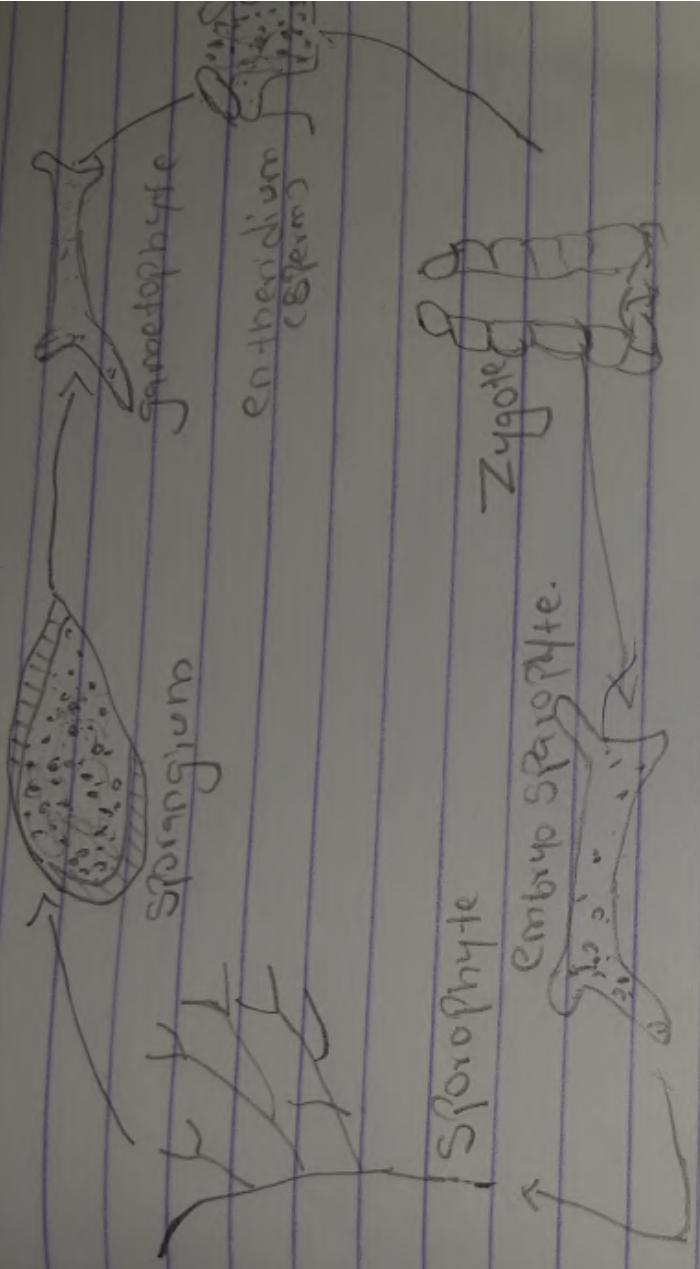 Sporophyte
Sporangium
gametophyte
entheridium
(sperm)
Zygote
embryo sporophyte.